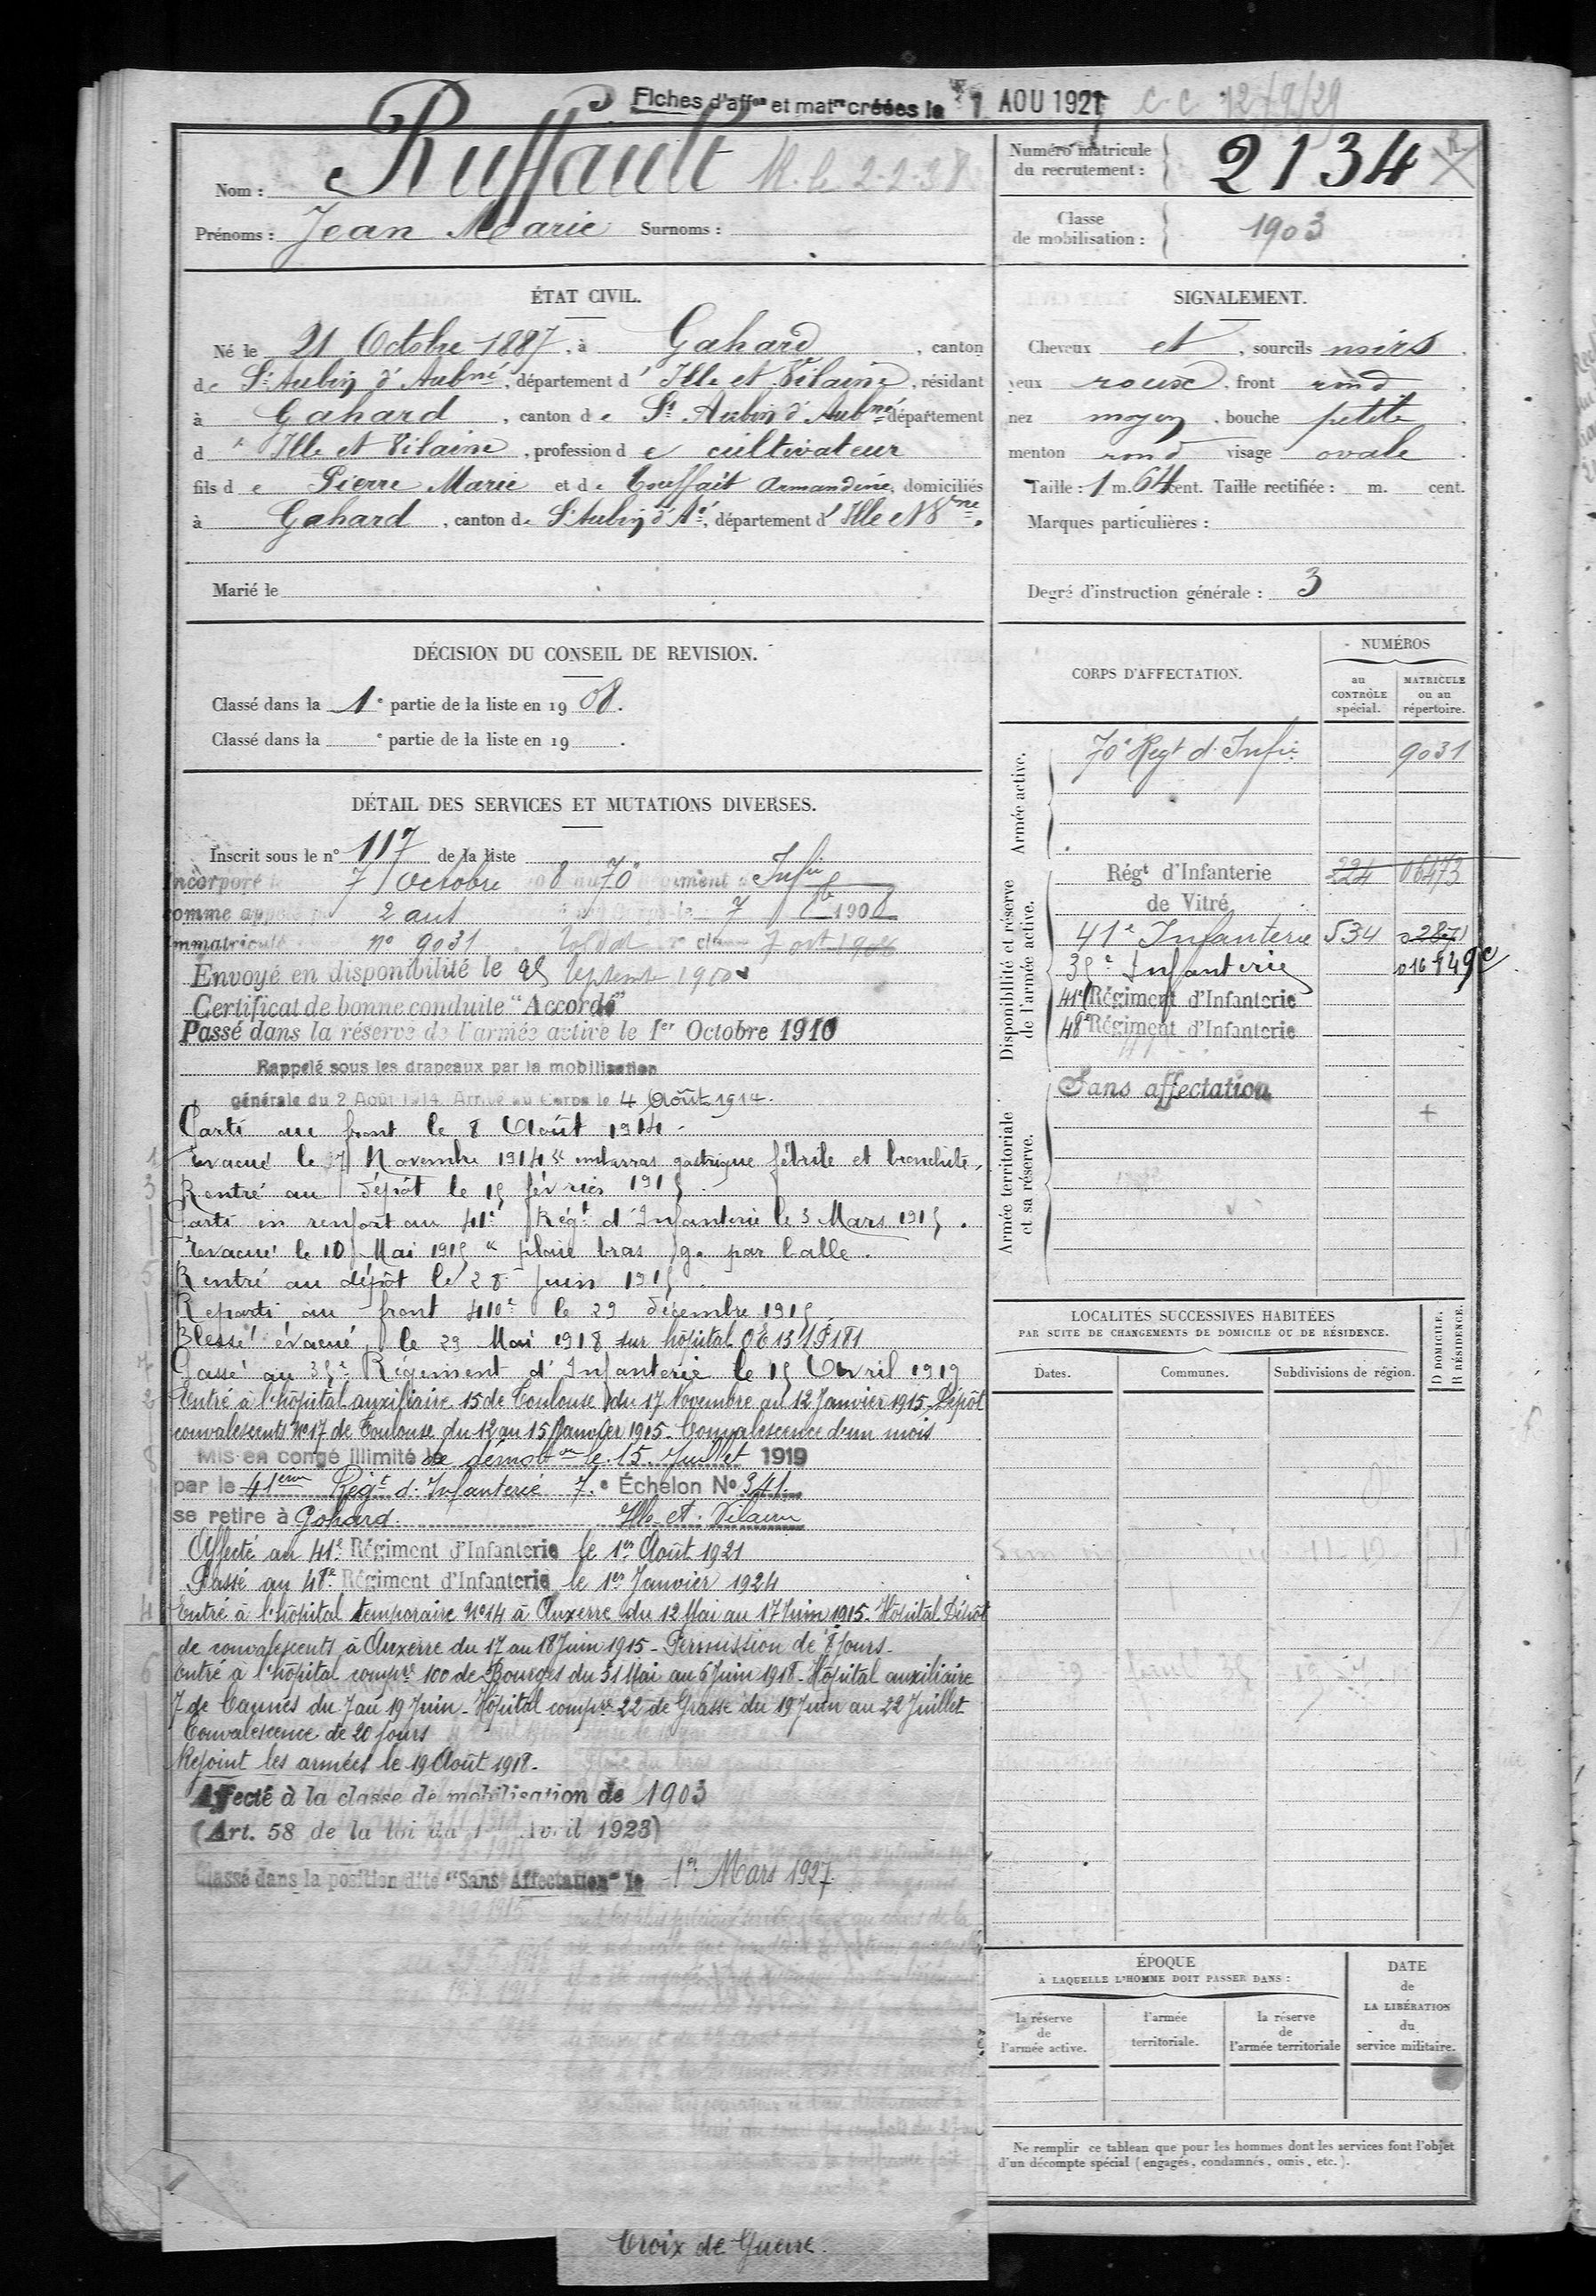 Fiches d'affon et matre créées le 1 AOU 1927 C C 12/9/29
Nom : Ruffault
Prénoms : Jean Marie Surnoms :
Numéro matricule du recrutement : 2134
Classe de mobilisation : 1903
ÉTAT CIVIL.
Né le 21 Octobre 1887, à Gahard, canton
de St Aubin d'Aubné, département d'Ille et Vilaine, résidant
à Gahard, canton de St Aubin d'Aubné département
d'Ille et Vilaine, profession de cultivateur
fils de Pierre Marie et de Touffait Armandine, domiciliés
à Gahard, canton de St Aubin d'Aé, département d'Ille et Vne.
Marié le
SIGNALEMENT.
Cheveux et, sourcils noirs.
yeux roux, front rond.
nez moyen, bouche petite.
menton rond visage ovale.
Taille : 1 m. 64 cent. Taille rectifiée : m. cent.
Marques particulières :
Degré d'instruction générale : 3
DÉCISION DU CONSEIL DE REVISION.
Classé dans la 1e partie de la liste en 1908.
Classé dans la e partie de la liste en 19 .
DÉTAIL DES SERVICES ET MUTATIONS DIVERSES.
Inscrit sous le n° 117 de la liste
Incorporé le 7 Octobre 8 au 70e Régiment d'Infie
comme appelé 2 ans 7 8bre 1908
Immatriculé n° 9031 soldat 2e classe 7 oct 1908
Envoyé en disponibilité le 25 septembre 1910
Certificat de bonne conduite "Accordé"
Passé dans la réserve de l'armée active le 1er Octobre 1910
Rappelé sous les drapeaux par la mobilisation
générale du 2 Août 1914. Arrivé au Corps le 4 Août 1914.
Parti au front le 8 Août 1914.
1 Evacué le 7 Novembre 1914 "embarras gastrique fébrile et bronchite,
3 Rentré au dépôt le 15 février 1915.
Parti en renfort au 41e Régt d'Infanterie le 3 Mars 1915.
Evacué le 10 Mai 1915 "plaie bras g. par balle.
5 Rentré au dépôt le 28 juin 1915.
Reparti au front 410e le 29 décembre 1915
Blessé évacué le 29 Mai 1918 sur hôpital OE 13
7 Passé au 35e Régiment d'Infanterie le 15 Avril 1919
2 Entré à l'hôpital auxiliaire 15 de Toulouse du 17 Novembre au 12 Janvier 1915. Dépôt
convalescents N°17 de Toulouse du 12 au 15 Janvier 1915. Convalescence d'un mois
8 Mis en congé illimité de démobon le 15 Juillet 1919
par le 41ème Régt d'Infanterie 7.e Échelon No 341.
se retire à Gahard Ille et Vilaine
Affecté au 41e Régiment d'Infanterie le 1er Août 1921
Passé au 48e Régiment d'Infanterie le 1er Janvier 1924
4 Entré à l'hôpital temporaire N°14 à Auxerre du 12 Mai au 17 Juin 1915. Hôpital Dépôt
de convalescents à Auxerre du 17 au 18 Juin 1915 - Permission de 8 jours.
6 Entré à l'hôpital compre 100 de Bourges du 31 Mai au 6 Juin 1918. Hôpital auxiliaire
7 de Cannes du 7 au 19 Juin. Hôpital compre 22 de Grasse du 19 Juin au 22 Juillet
Convalescence de 20 jours
Rejoint les armées le 19 Août 1918.
Affecté à la classe de mobilisation de 1903
(Art. 58 de la loi du 1 Avril 1923)
Classé dans la position dite "Sans Affectation" le 1er Mars 1927.
CORPS D'AFFECTATION.
NUMÉROS
au CONTRÔLE spécial.
MATRICULE ou au répertoire.
Armée active.
70e Regt d'Infie 9031
Disponibilité et réserve de l'armée active.
Régt d'Infanterie 224 06473
de Vitré
41e Infanterie 534 02871
35e Infanterie 016949c
41e Régiment d'Infanterie
48e Régiment d'Infanterie
Armée territoriale et sa réserve.
Sans affectation
LOCALITÉS SUCCESSIVES HABITÉES
PAR SUITE DE CHANGEMENTS DE DOMICILE OU DE RÉSIDENCE.
D DOMICILE.
R RÉSIDENCE.
Dates. Communes. Subdivisions de région.
ÉPOQUE
À LAQUELLE L'HOMME DOIT PASSER DANS :
la réserve de l'armée active.
l'armée territoriale.
la réserve de l'armée territoriale
DATE de LA LIBÉRATION du service militaire.
Ne remplir ce tableau que pour les hommes dont les services font l'objet
d'un décompte spécial (engagés, condamnés, omis, etc.).
Croix de Guerre.